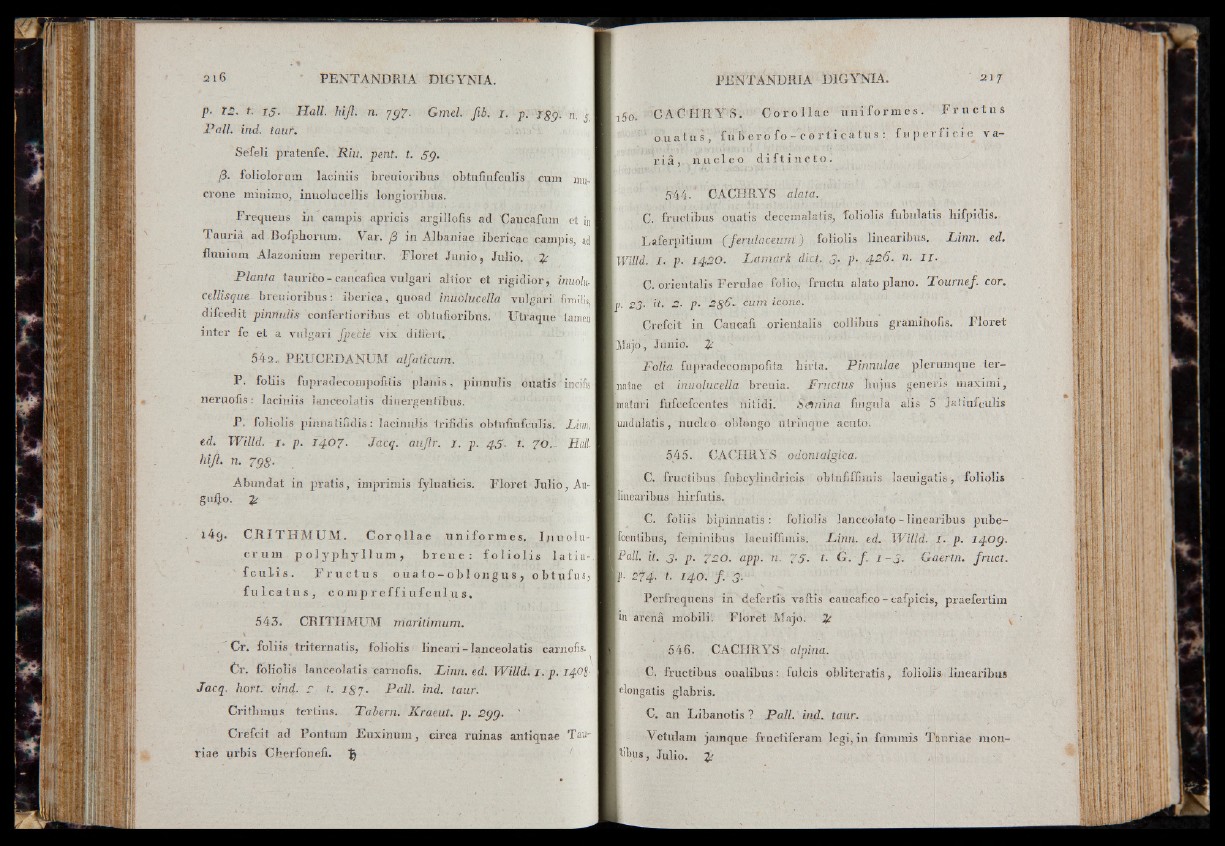 216 PENTANDRIA DIGYNIA.
p. 12. t. 15. Hall. hiſt. n. 797. Gmel. ſib. 1. p. 189. n. 5.
Pall. ind. taur.
Seſeli pratenſe. Riu. pent. t. 59.
β. foliolorum laciniis breuioribus obtuſiuſculis cum mu-
crone minimo, inuolucellis longioribus.
Frequens in campis apricis argilloſis ad Caucaſum et in
Tauriâ ad Boſphorum. Var. β in Albaniae ibericae campis, ad
fluuium Alazonium reperitur. Floret Junio, Julio. ♃
Planta taurico-caucaſica vulgari altior et rigidior, inuolu-
cellisque breuioribus: iberica, quoad inuolucella vulgari ſimilis,
diſcedit pinnulis confertioribus et obtuſioribus. Utraque tamen
inter ſe et a vulgari ſpecie vix differt.
542. PEUCEDANUM alſaticum.
P. foliis ſupradecompoſitis planis, pinnulis ouatis inciſis
neruoſis: laciniis lanceolatis diuergentibus.
P. foliolis pinnatifidis: lacinulis trifidis obtuſiuſculis. Linn.
ed. Willd. 1. p. 1407. Jacq. auſtr. 1. p. 45. t. 70. Hall.
hiſt. n. 798.
Abundat in pratis, imprimis ſyluaticis. Floret Julio, Au-
guſto. ♃
149. CRITHMUM. Corollae uniformes. Inuolu-
crum polyphyllum, breue: foliolis latiu-
ſculis. Fructus ouato-oblongus, obtuſus,
ſulcatus, compreſſiuſculus.
543. CRITHMUM maritimum.
Cr. foliis triternatis, foliolis lineari-lanceolatis carnoſis.
Cr. foliolis lanceolatis carnoſis. Linn. ed. Willd. 1. p. 1408.
Jacq. hort. vind. 2. t. 187. Pall. ind. taur.
Crithmus tertius. Tabern. Kraeut. p. 299.
Creſcit ad Pontum Euxinum, circa ruinas antiquae Tau-
riae urbis Cherſoneſi. ♄
PENTANDRIA DIGYNIA. 217
150. CACHRYS. Corollae uniformes. Fructus
ouatus, ſuberoſo-corticatus: ſuperficie va-
riâ, nucleo diſtincto.
544. CACHRYS alata.
C. fructibus ouatis decemalatis, foliolis ſubulatis hiſpidis.
Laſerpitium (ferulaceum) foliolis linearibus. Linn. ed.
Willd. 1. p. 1420. Lamark dict. 3. p. 426. n. 11.
C. orientalis Ferulae folio, fructu alato plano. Tournef. cor.
p. 23. it. 2. p. 286. cum icone.
Creſcit in Caucaſi orientalis collibus graminoſis. Floret
Majo, Junio. ♃
Folia ſupradecompoſita hirta. Pinnulae plerumque ter-
natae et inuolucella breuia. Fructus hujus generis maximi,
maturi fuſceſcentes nitidi. Semina ſingula alis 5 latiuſculis
undulatis, nucleo oblongo utrinque acuto.
545. CACHRYS odontalgica.
C. fructibus ſubcylindricis obtuſiſſimis laeuigatis, foliolis
linearibus hirſutis.
C. foliis bipinnatis: foliolis lanceolato-linearibus pube-
ſcentibus, ſeminibus laeuiſſimis. Linn. ed. Willd. 1. p. 1409.
Pall. it. 3. p. 720. app. n. 75. t. G. f. 1-3. Gaertn. fruct.
p. 274. t. 140. f. 3.
Perfrequens in deſertis vaſtis caucaſico-caſpicis, praeſertim
in arenâ mobili. Floret Majo. ♃
546. CACHRYS alpina.
C. fructibus oualibus: ſulcis obliteratis, foliolis linearibus
elongatis glabris.
C. an Libanotis? Pall. ind. taur.
Vetulam jamque fructiferam legi, in ſummis Tauriae mon-
tibus, Julio. ♃